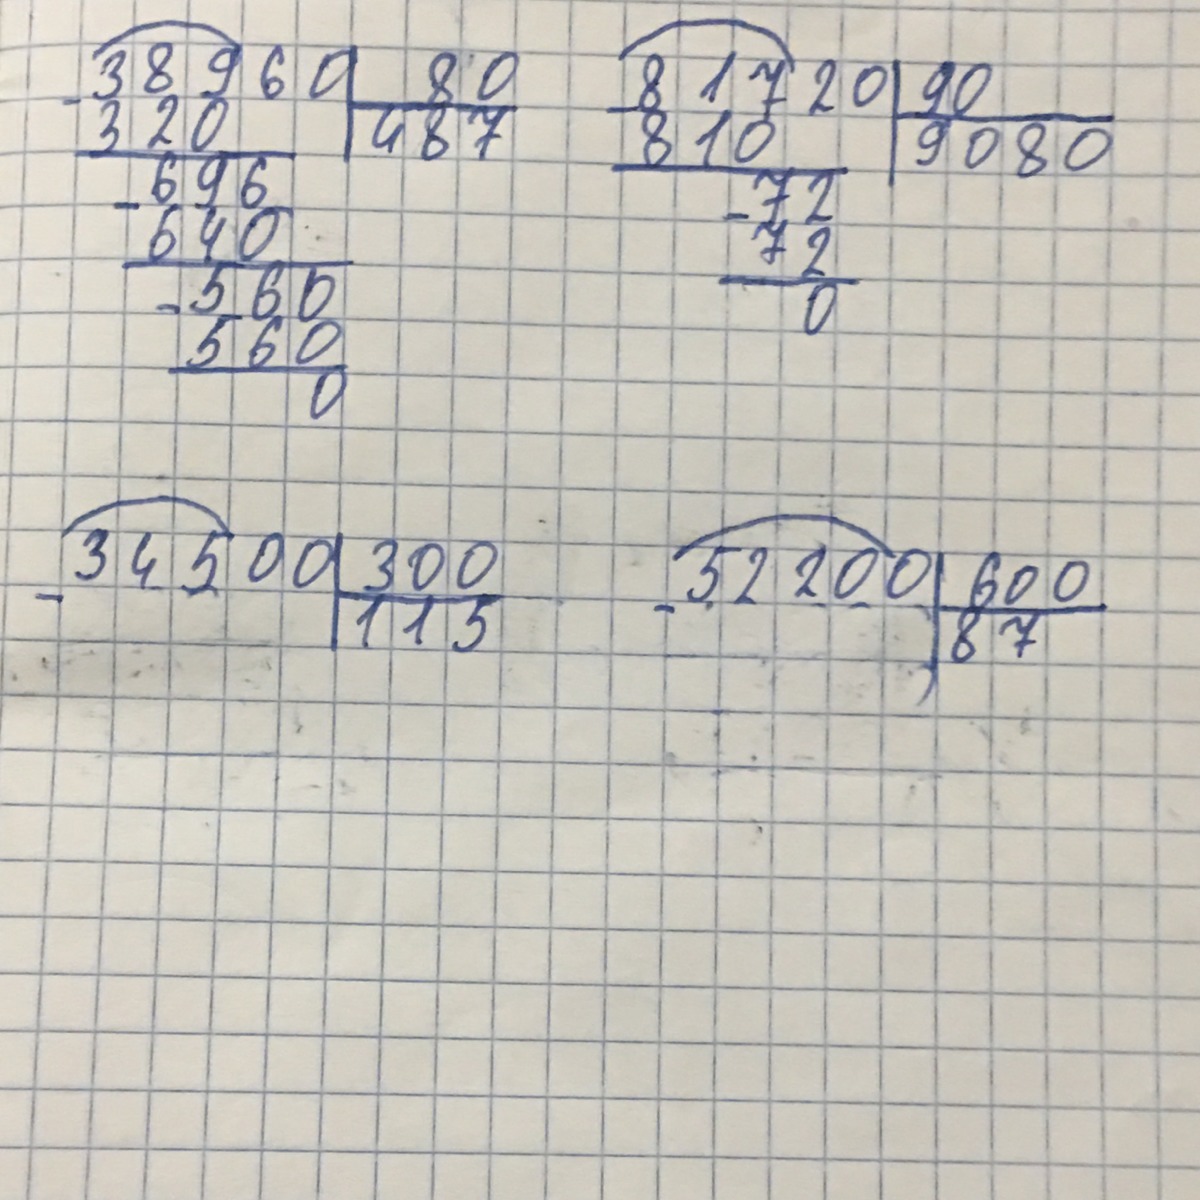 38960 80
-320 487
-696
640
-560
560
0
81720 90
-810 9080
-72
72
0
34500 300
- 115
52200 600
- 87